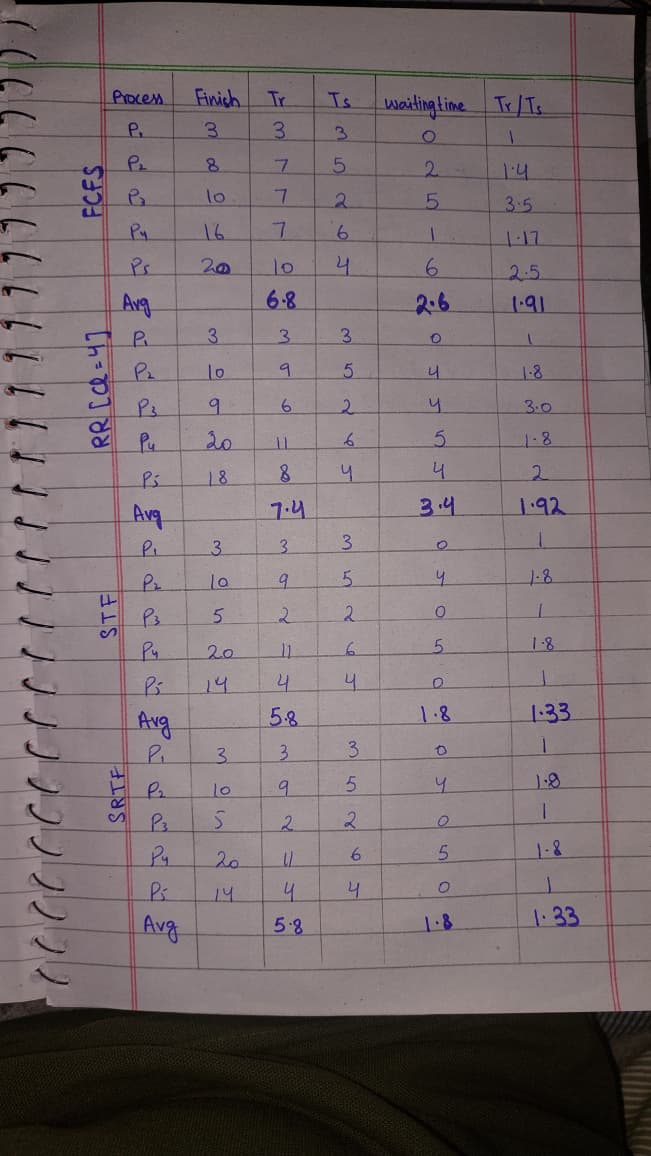 Process Finish Tr Ts waiting time Tr/Ts
FCFS
P1 3 3 3 0 1
P2 8 7 5 2 1.4
P3 10 7 2 5 3.5
P4 16 7 6 1 1.17
P5 20 10 4 6 2.5
Avg 6.8 2.6 1.91
RR [Q=4]
P1 3 3 3 0 1
P2 10 9 5 4 1.8
P3 9 6 2 4 3.0
P4 20 11 6 5 1.8
P5 18 8 4 4 2
Avg 7.4 3.4 1.92
STF
P1 3 3 3 0 1
P2 10 9 5 4 1.8
P3 5 2 2 0 1
P4 20 11 6 5 1.8
P5 14 4 4 0 1
Avg 5.8 1.8 1.33
SRTF
P1 3 3 3 0 1
P2 10 9 5 4 1.8
P3 5 2 2 0 1
P4 20 11 6 5 1.8
P5 14 4 4 0 1
Avg 5.8 1.8 1.33